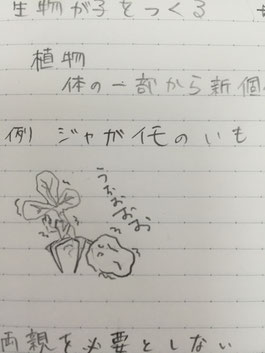 生物が子をつくる
植物
体の一部から新個
例 ジャガイモのいも
うおおおお
両親を必要としない